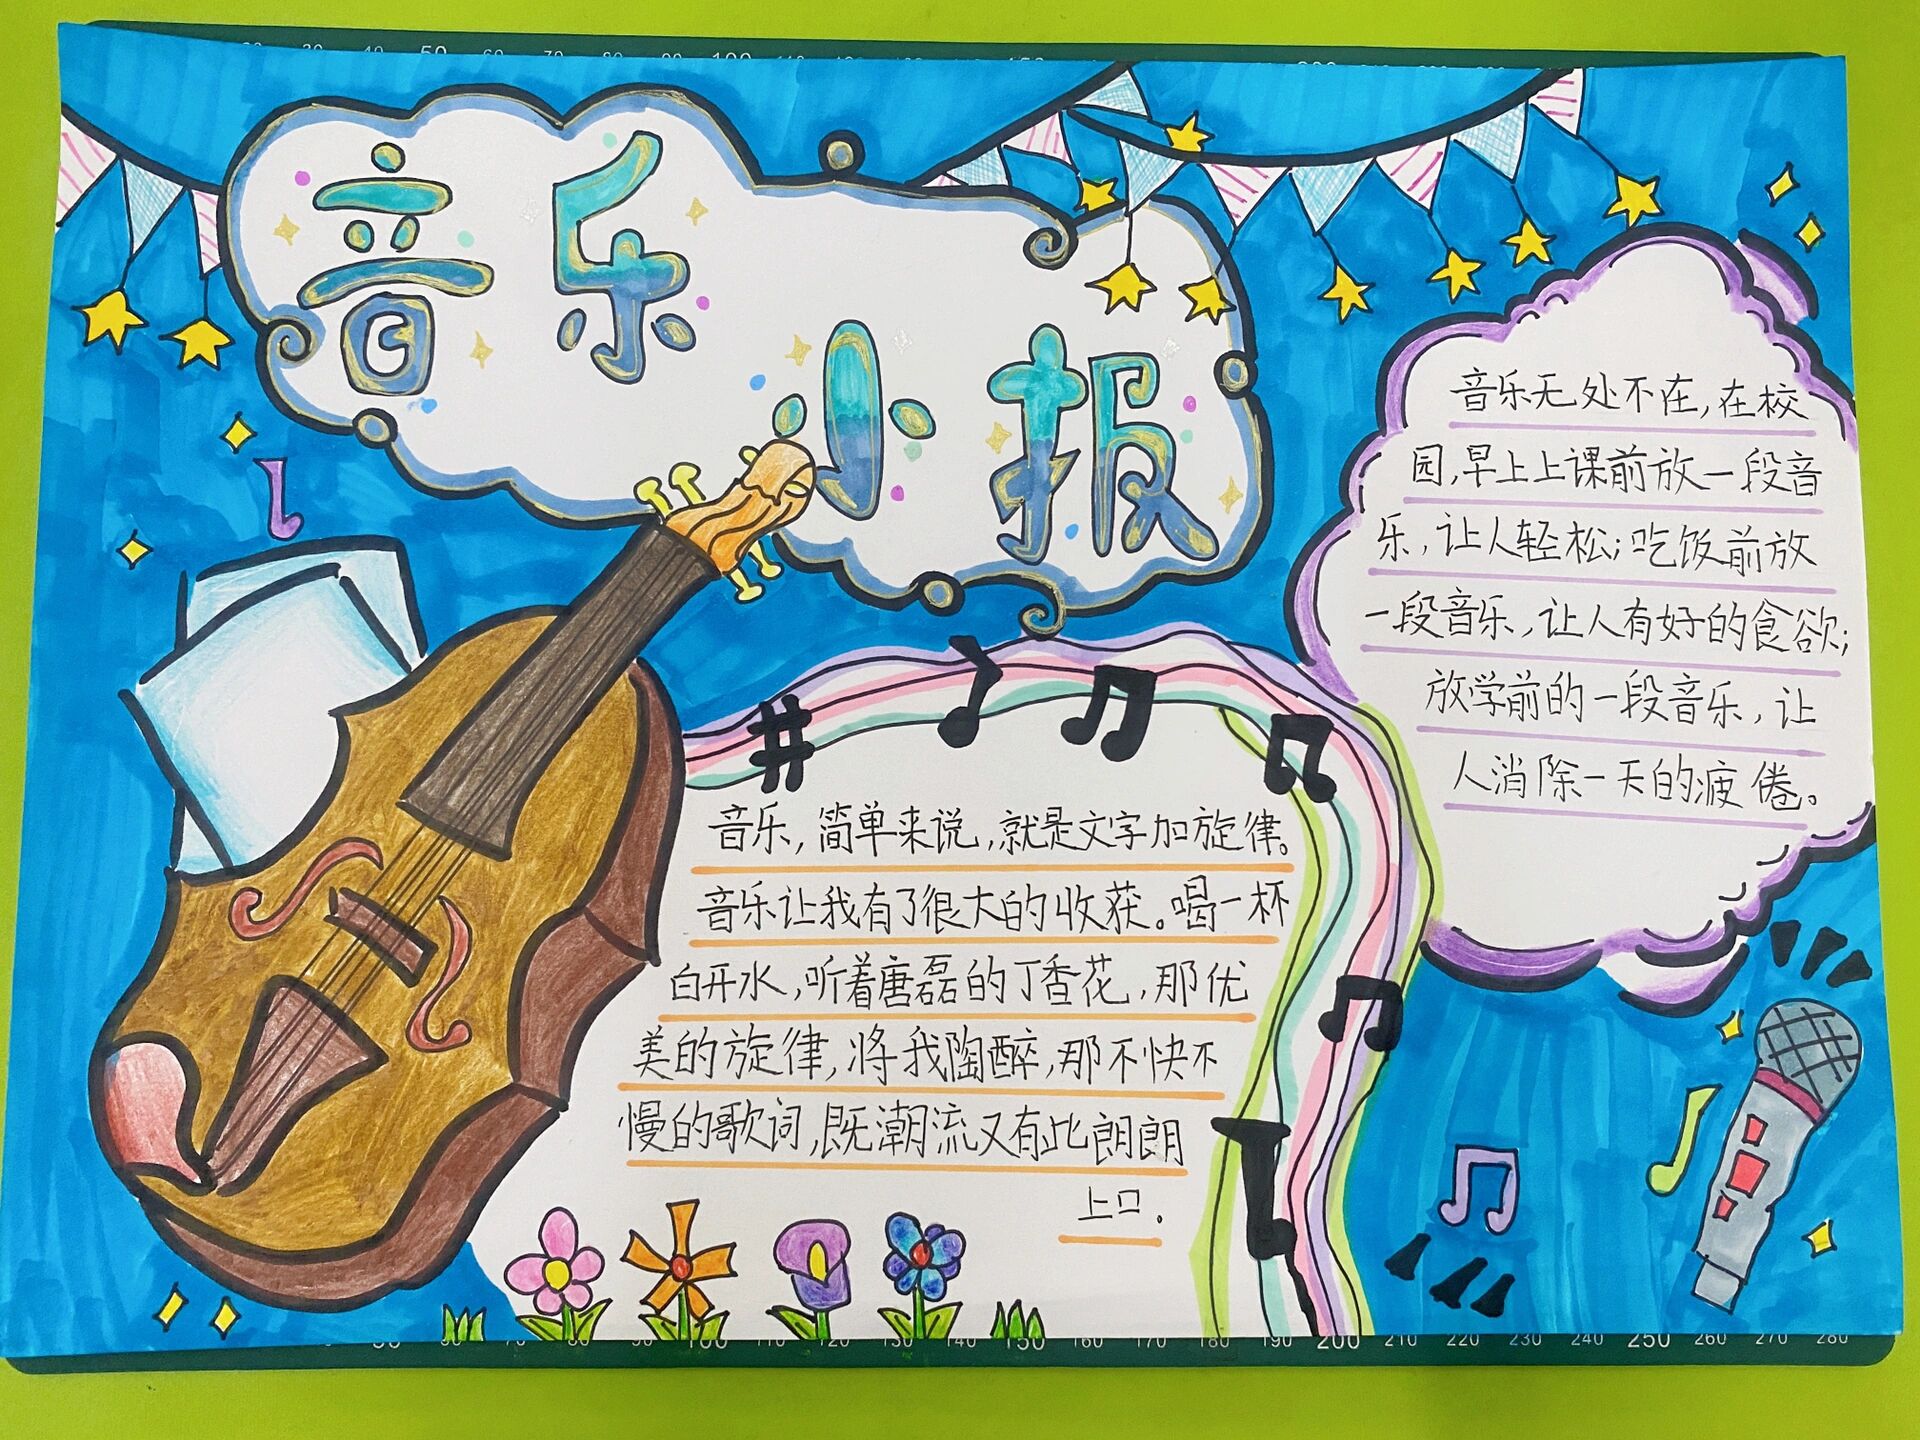 音乐
小报
音乐无处不在,在校
园,早上上课前放一段音
乐,让人轻松;吃饭前放
一段音乐,让人有好的食欲;
放学前的一段音乐,让
人消除一天的疲倦。
音乐,简单来说,就是文字加旋律。
音乐让我有了很大的收获。喝一杯
白开水,听着唐磊的丁香花,那优
美的旋律,将我陶醉,那不快不
慢的歌词,既潮流又有此朗朗
上口.
100 110 120 130 140 150 160 170 180 190 200 210 220 230 240 250 260 270 280